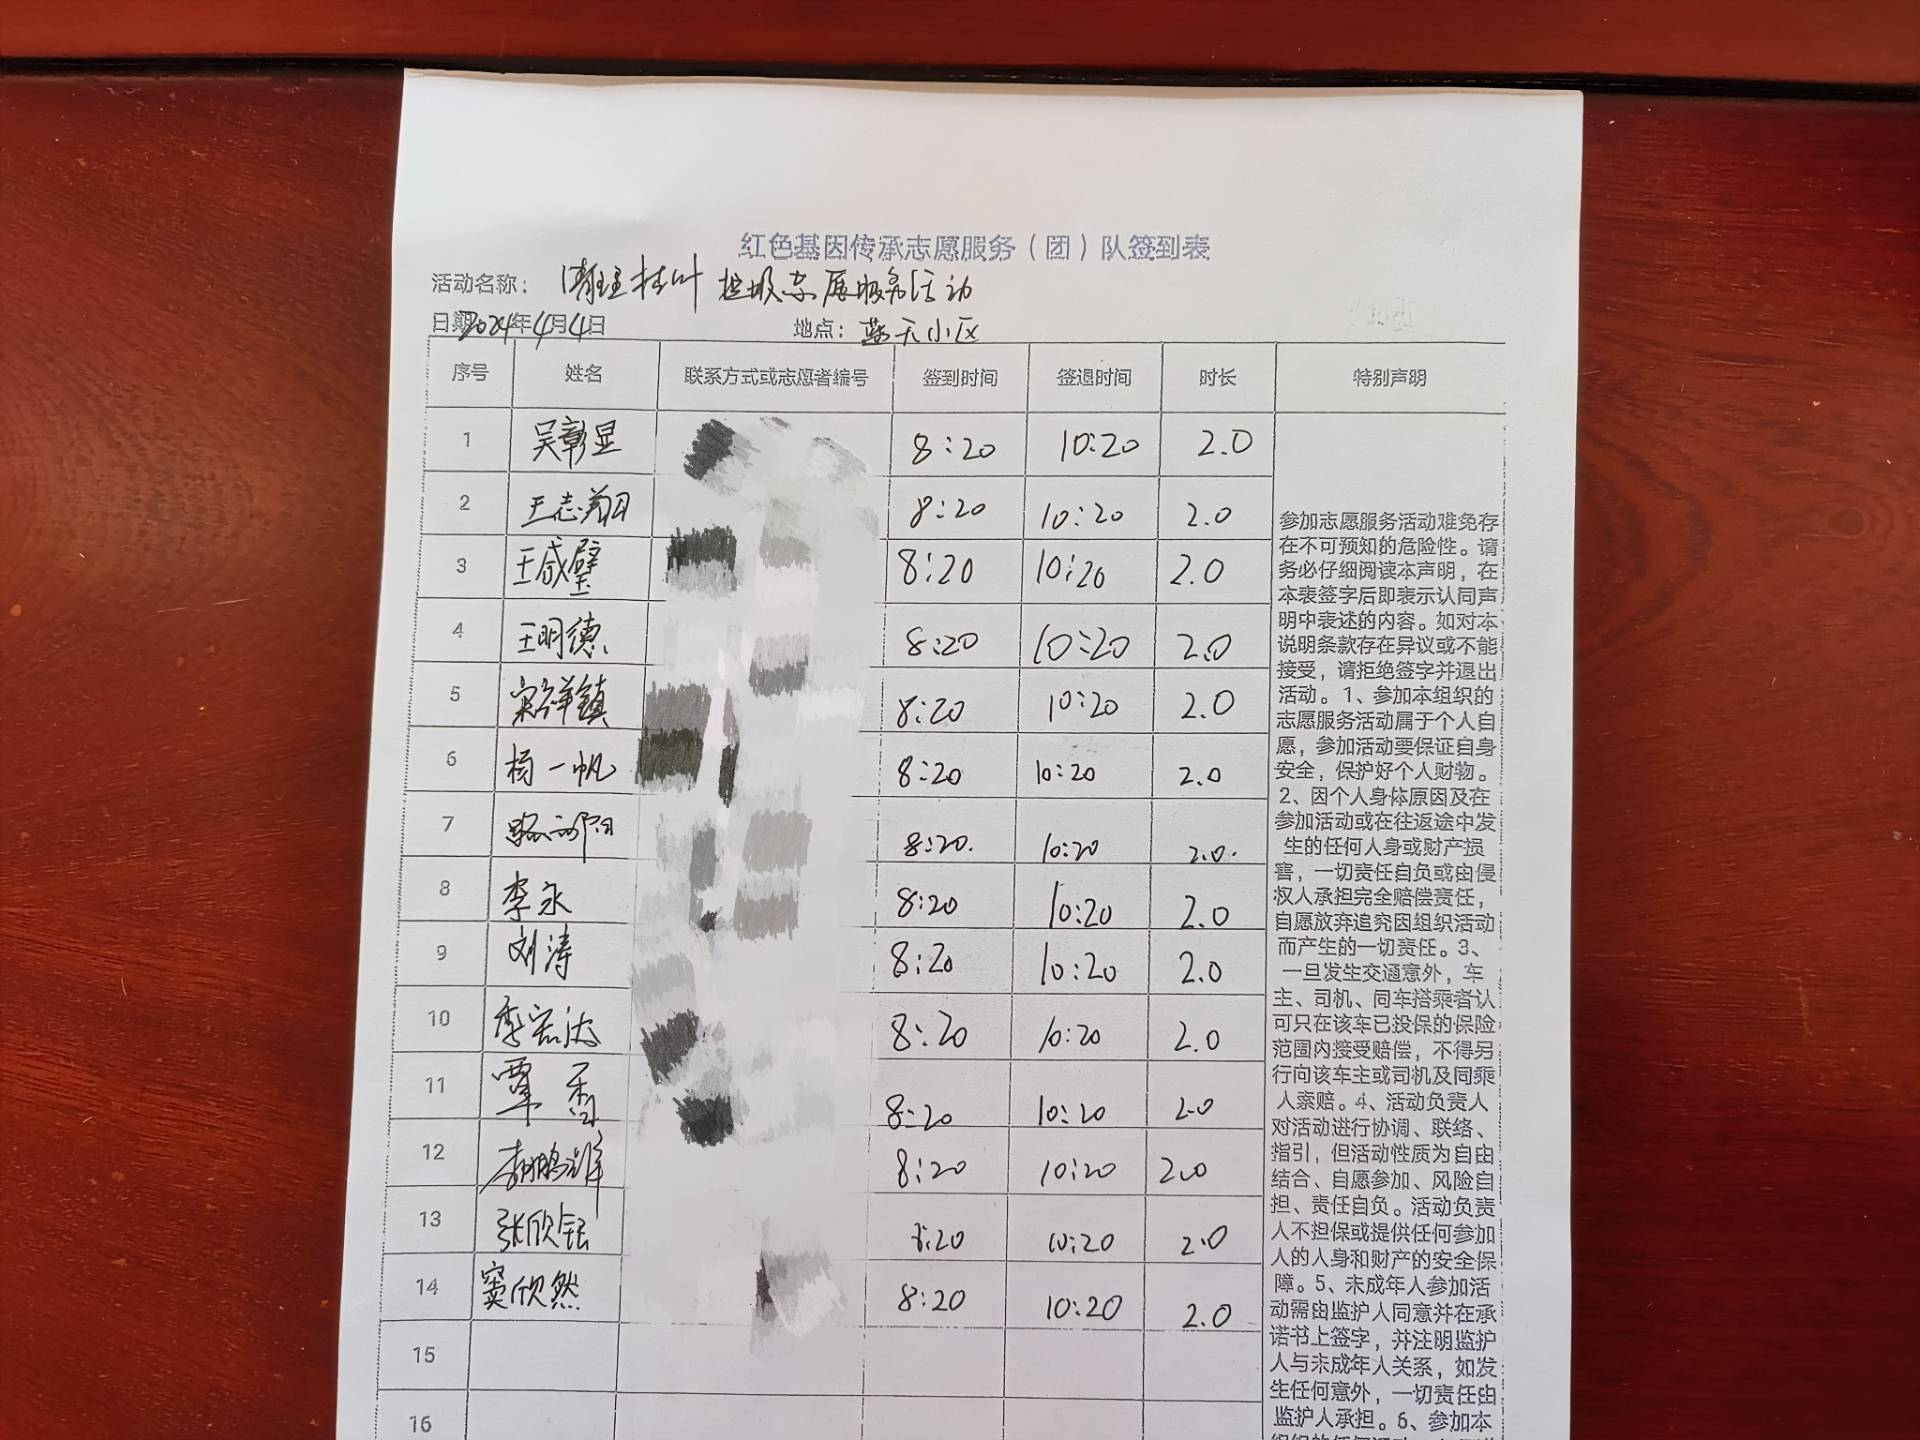 红色基因传承志愿服务（团）队签到表
活动名称： 清理枯叶垃圾志愿服务活动
日期2024年4月4日 地点：蓝天小区
序号 姓名 联系方式或志愿者编号 签到时间 签退时间 时长 特别声明
1 吴彰显 8:20 10:20 2.0
2 王志翔 8:20 10:20 2.0
3 王咸璧 8:20 10:20 2.0
4 王明德 8:20 10:20 2.0
5 8:20 10:20 2.0
6 杨一帆 8:20 10:20 2.0
7 8:20. 10:20 2.0.
8 李永 8:20 10:20 2.0
9 刘涛 8:20 10:20 2.0
10 李宏达 8:20 10:20 2.0
11 覃香 8:20 10:20 2.0
12 8:20 10:20 2.0
13 张欣钰 8:20 10:20 2.0
14 窦欣然 8:20 10:20 2.0
15
16
参加志愿服务活动难免存
在不可预知的危险性。请
务必仔细阅读本声明，在
本表签字后即表示认同声
明中表述的内容。如对本
说明条款存在异议或不能
接受，请拒绝签字并退出
活动。1、参加本组织的
志愿服务活动属于个人自
愿，参加活动要保证自身
安全，保护好个人财物。
2、因个人身体原因及在
参加活动或在往返途中发
生的任何人身或财产损
害，一切责任自负或由侵
权人承担完全赔偿责任，
自愿放弃追究因组织活动
而产生的一切责任。3、
一旦发生交通意外，车
主、司机、同车搭乘者认
可只在该车已投保的保险
范围内接受赔偿，不得另
行向该车主或司机及同乘
人索赔。4、活动负责人
对活动进行协调、联络、
指引，但活动性质为自由
结合、自愿参加、风险自
担、责任自负。活动负责
人不担保或提供任何参加
人的人身和财产的安全保
障。5、未成年人参加活
动需由监护人同意并在承
诺书上签字，并注明监护
人与未成年人关系，如发
生任何意外，一切责任由
监护人承担。6、参加本